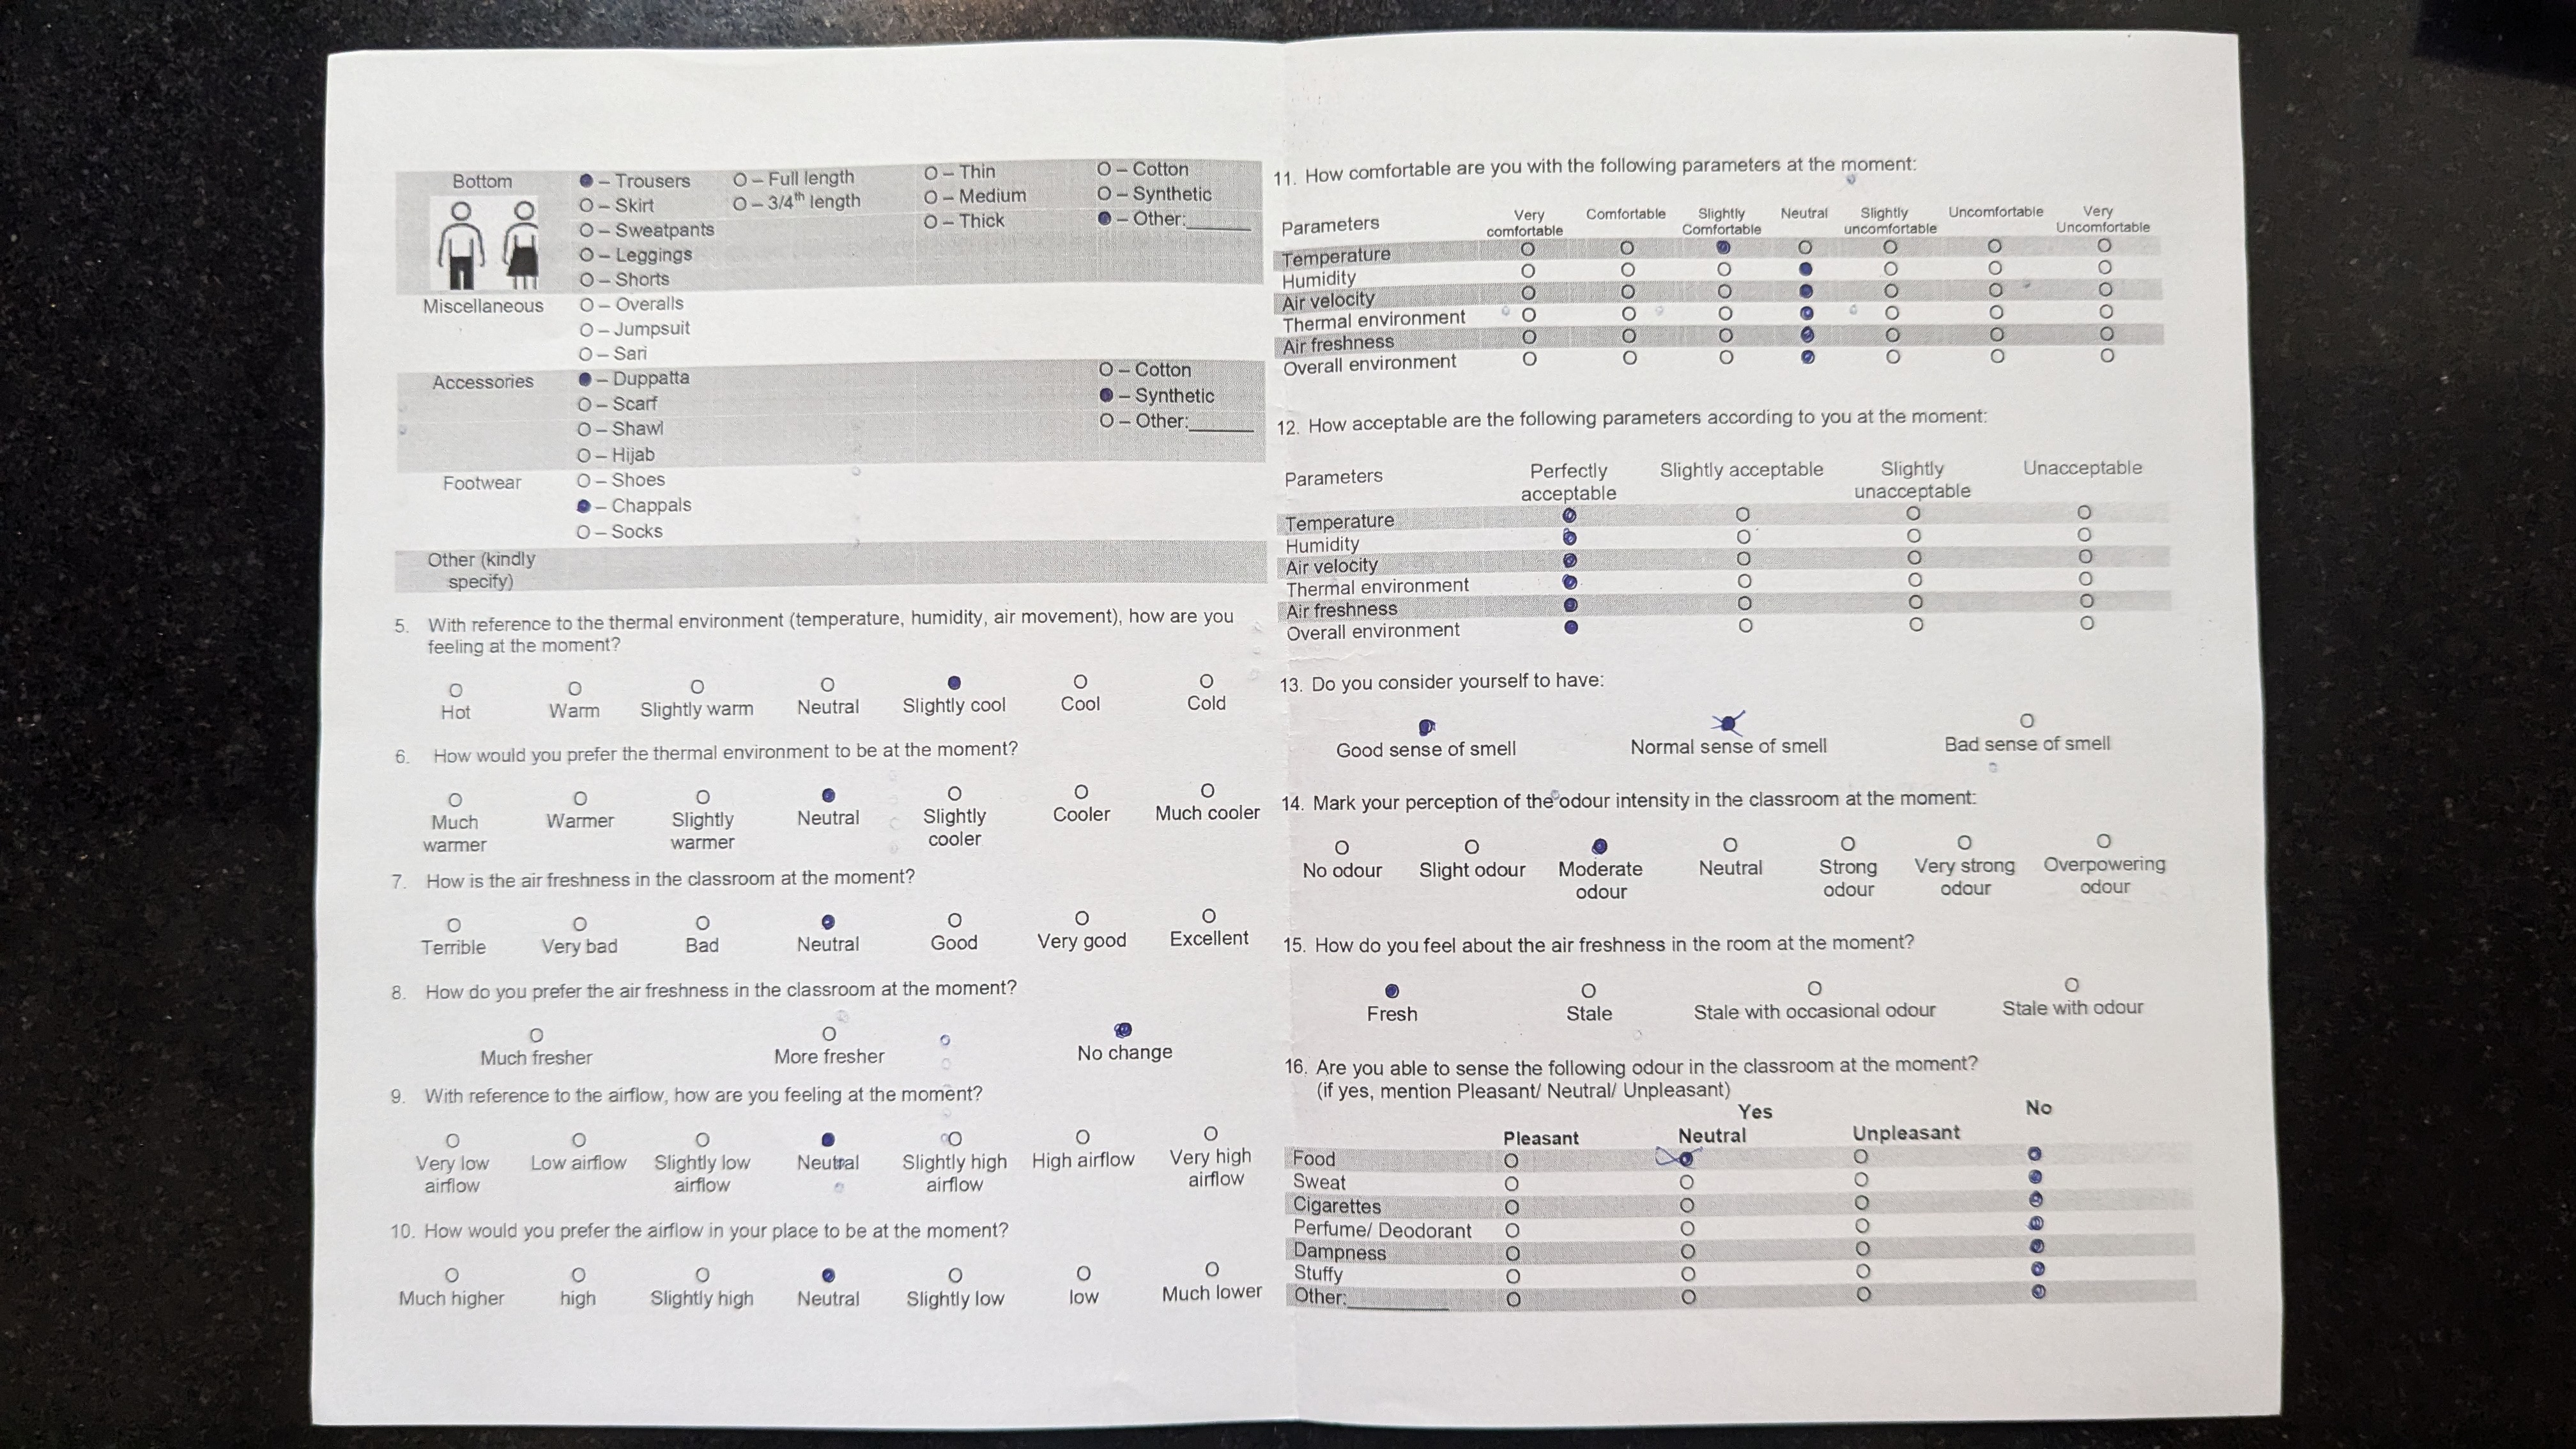 Bottom
● – Trousers O – Full length O – Thin O – Cotton
O – Skirt O – 3/4th length O – Medium O – Synthetic
O – Sweatpants O – Thick ● – Other:______
O – Leggings
O – Shorts
Miscellaneous O – Overalls
O – Jumpsuit
O – Sari
Accessories ● – Duppatta O – Cotton
O – Scarf ● – Synthetic
O – Shawl O – Other:______
O – Hijab
Footwear O – Shoes
● – Chappals
O – Socks
Other (kindly
specify)
5. With reference to the thermal environment (temperature, humidity, air movement), how are you
feeling at the moment?
O O O O ● O O
Hot Warm Slightly warm Neutral Slightly cool Cool Cold
6. How would you prefer the thermal environment to be at the moment?
O O O ● O O O
Much Warmer Slightly Neutral Slightly Cooler Much cooler
warmer warmer cooler
7. How is the air freshness in the classroom at the moment?
O O O ● O O O
Terrible Very bad Bad Neutral Good Very good Excellent
8. How do you prefer the air freshness in the classroom at the moment?
O O ●
Much fresher More fresher No change
9. With reference to the airflow, how are you feeling at the moment?
O O O ● O O O
Very low Low airflow Slightly low Neutral Slightly high High airflow Very high
airflow airflow airflow airflow
10. How would you prefer the airflow in your place to be at the moment?
O O O ● O O O
Much higher high Slightly high Neutral Slightly low low Much lower
11. How comfortable are you with the following parameters at the moment:
Parameters Very Comfortable Slightly Neutral Slightly Uncomfortable Very
comfortable Comfortable uncomfortable Uncomfortable
Temperature O O ● O O O O
Humidity O O O ● O O O
Air velocity O O O ● O O O
Thermal environment O O O ● O O O
Air freshness O O O ● O O O
Overall environment O O O ● O O O
12. How acceptable are the following parameters according to you at the moment:
Parameters Perfectly Slightly acceptable Slightly Unacceptable
acceptable unacceptable
Temperature ● O O O
Humidity ● O O O
Air velocity ● O O O
Thermal environment ● O O O
Air freshness ● O O O
Overall environment ● O O O
13. Do you consider yourself to have:
● ● O
Good sense of smell Normal sense of smell Bad sense of smell
14. Mark your perception of the odour intensity in the classroom at the moment:
O O ● O O O O
No odour Slight odour Moderate Neutral Strong Very strong Overpowering
odour odour odour odour
15. How do you feel about the air freshness in the room at the moment?
● O O O
Fresh Stale Stale with occasional odour Stale with odour
16. Are you able to sense the following odour in the classroom at the moment?
(if yes, mention Pleasant/ Neutral/ Unpleasant)
Yes No
Pleasant Neutral Unpleasant
Food O ● O ●
Sweat O O O ●
Cigarettes O O O ●
Perfume/ Deodorant O O O ●
Dampness O O O ●
Stuffy O O O ●
Other:_________ O O O ●